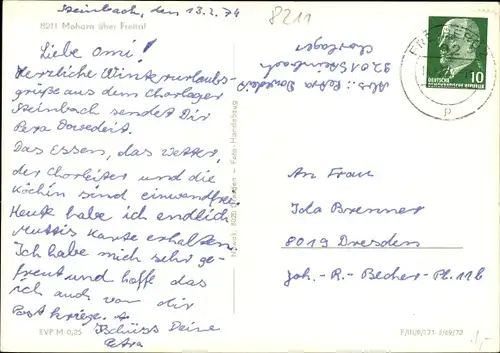 Steinbach, den 13.2.74
8211
8211 Mohorn über Freital
Liebe Omi!
Herzliche Winterurlaubs-
grüße aus dem Chorlager
Steinbach sendet Dir
Petra
Das Essen, das Wetter,
der Chorleiter und die
Köchin sind einwandfrei.
Heute habe ich endlich
Muttis Karte erhalten.
Ich habe mich sehr ge-
freut und hoffe das
ich auch von dir
Post kriege.
Tschüss Deine
Petra
EVP M 0,25
Abs.: Petra
9201 Steinbach
Chorlager
DEUTSCHE
DEMOKRATISCHE REPUBLIK
10
An Frau
Ida Brenner
8019 Dresden
Joh.-R.-Becher-Pl. 11b
8020 Dresden – Foto-Handabzug